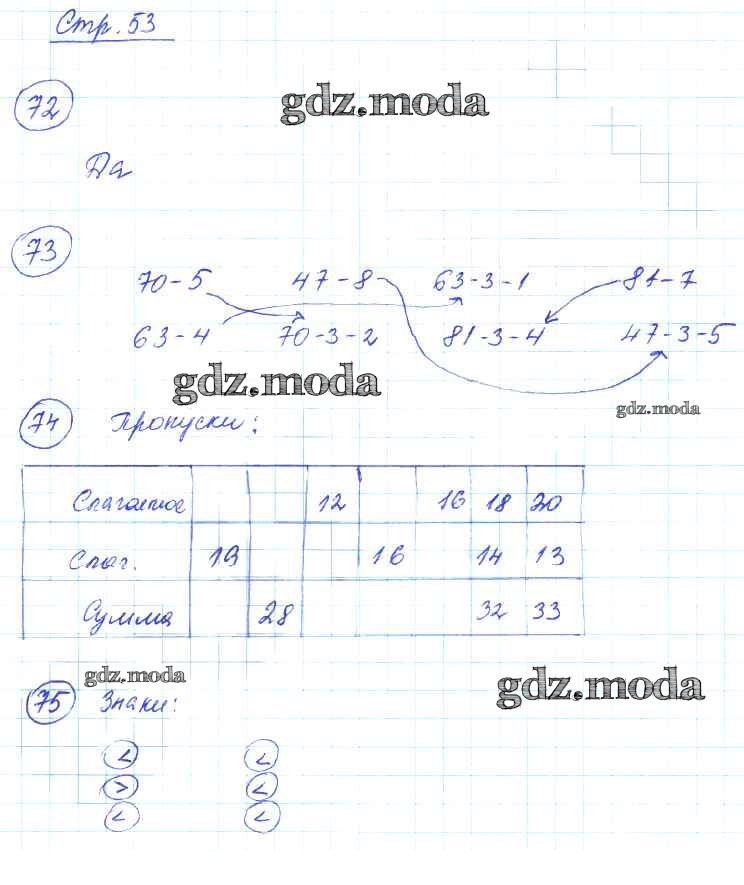 Стр. 53
72
gdz.moda
Да
73
70-5 47-8 63-3-1 81-7
63-4 70-3-2 81-3-4 47-3-5
gdz.moda
gdz.moda
74 Пропуски:
Слагаемое 12 16 18 20
Слаг. 19 16 14 13
Сумма 28 32 33
gdz.moda
gdz.moda
75 Знаки:
< <
> <
< <